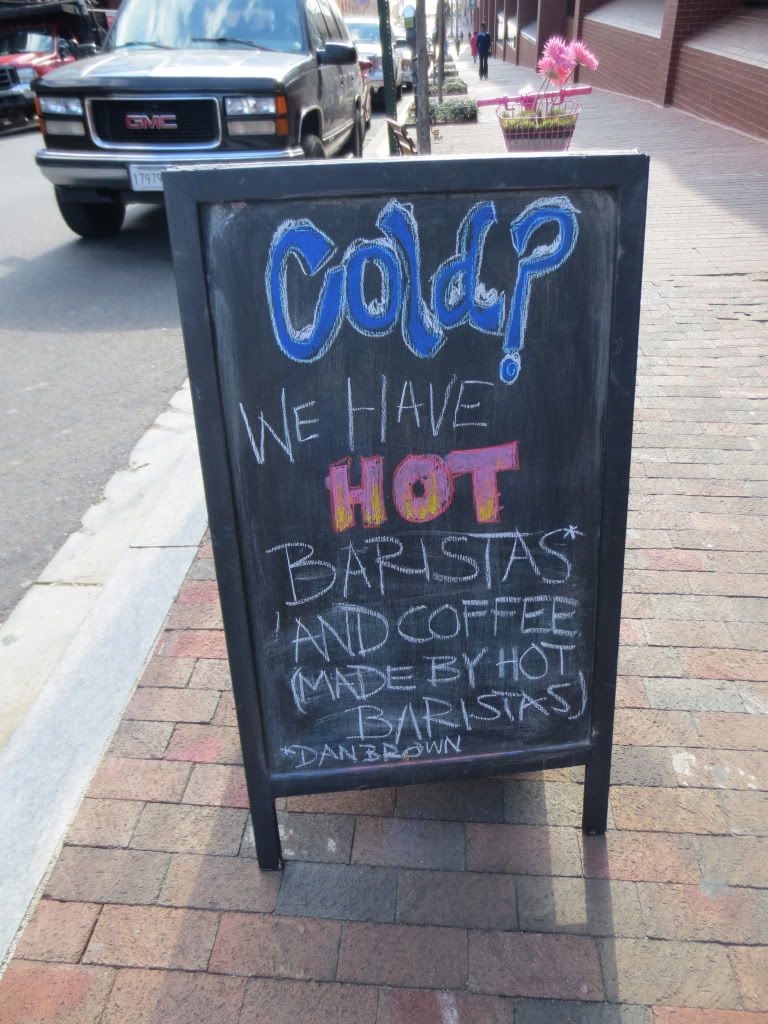 GMC
Cold?
WE HAVE
HOT
BARISTAS*
AND COFFEE
(MADE BY HOT
BARISTAS)
*DAN BROWN